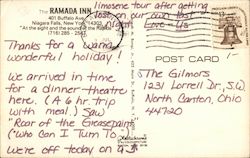 The RAMADA INN
401 Buffalo Ave.
Niagara Falls, New York 14303
"At the sight and sound of the Rapids"
(716) 285-
limosene tour after getting
lost on our own last
nite. Love Us
Thanks for a warm
wonderful holiday!
We arrived in time
for a dinner-theatre
here. (A 6 hr trip
with meal.) Saw
"Roar of the Greasepaint"
("Who Can I Turn To")
were off today on a 3
POST CARD
The Gilmors
1231 Lorrell Dr., S.W.
North Canton, Ohio
44720